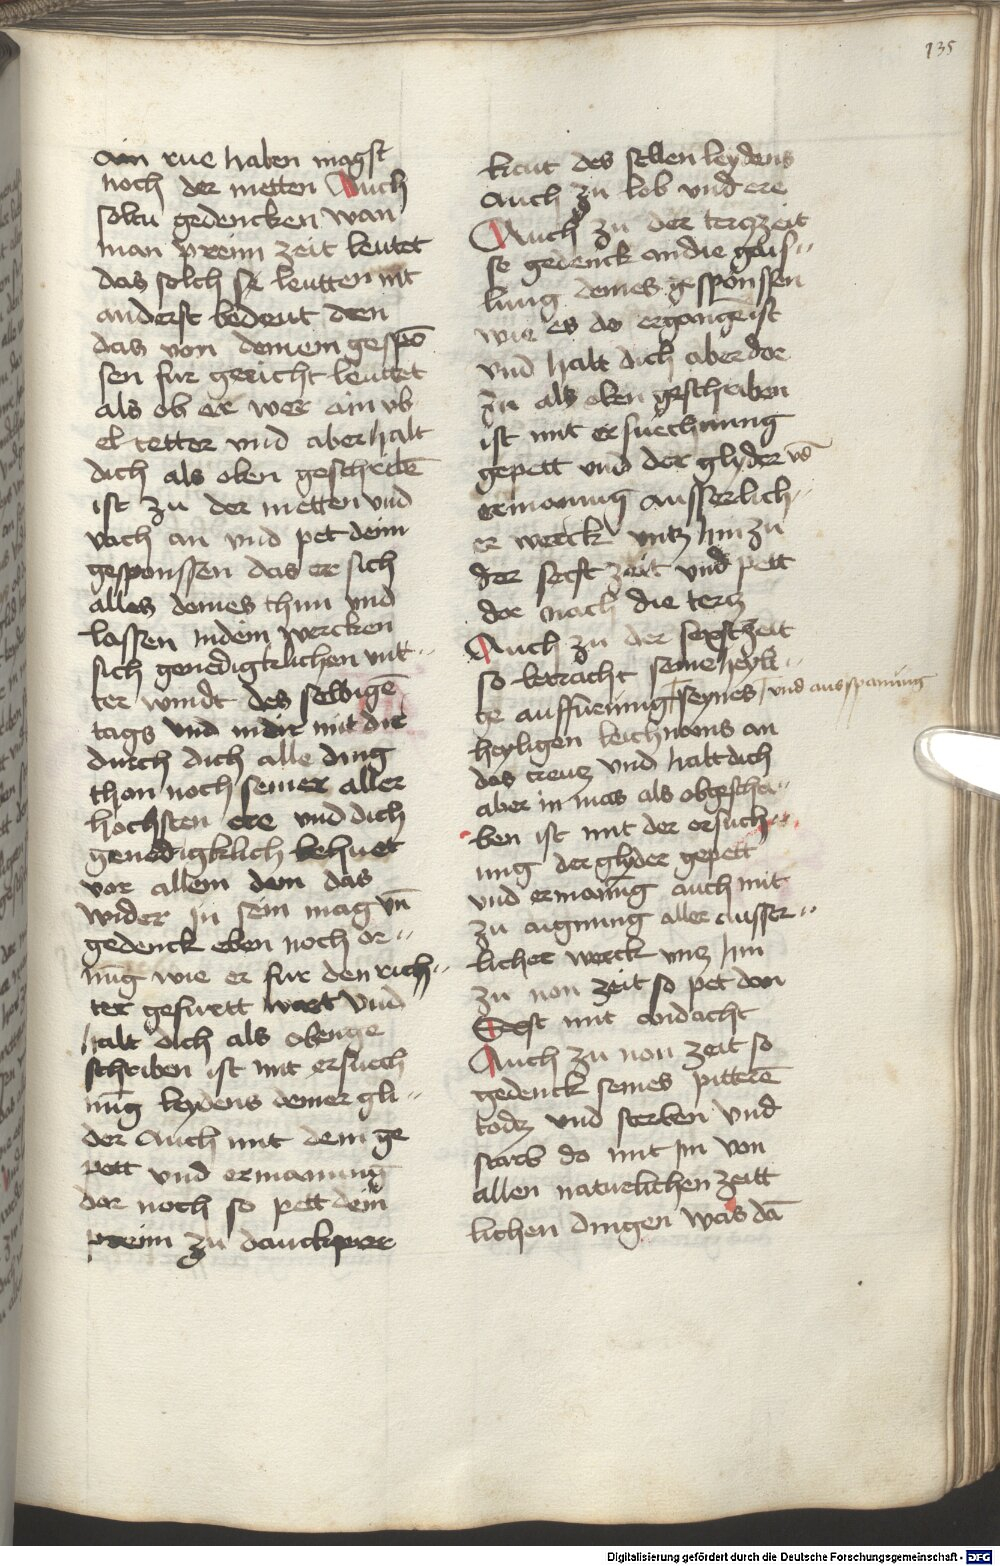 135
ain rue haben magst
noch der metten Auch
soltu gedencken wan
man preim zeit leutet
das solch sie leutten nit
anderst bedeut den
das von deinem gespō
sen fur gericht leutet
als ob er wer ain vb
el tetter vnd aber halt
dich als oben geschribē
ist zu der metten vnd
vach an vnd pet deim
gesponssen das er sich
alles deines thun vnd
lassen indem wercken
sich genedigklichen vnt
ter windt des selbigē
tags vnd in dir mit dir
durch dich alle ding
thon noch seiner aller
hochsten ere vnd dich
genedigklich behuet
vor allem dem das
wider in sein mag vn̄
gedenck eben noch or
nūg wie er fur den rich
ter gefurtt wart vnd
halt dich als oben ge
schriben ist mit ersuech
nūg leydens deiner gli
der Auch mit dem ge
pett vnd ermanung
dar noch so pett dein
preim zu danckper
kait des selben leydens
auch zu lob vnd ere
Auch zu der tertzzeit
so gedenck an die gais
lung deines gesponssen
wie es do ergangē ist
vnd halt dich aber dor
zu als oben geschriben
ist mit ersuechnung
gepett vnd der glyder vn̄
ermonung ausserlich
er werck vntz hin zu
der sext zeit vnd pett
dor nach die tertz
Auch zu der sextzeit
so betracht seine heyli
ge auffuerung seynes vnd ausspanung
heyligen leichnoms an
das creutz vnd halt dich
aber in mas als ob geschri
ben ist mit der ersuch
ung der glyder gepett
vnd ermonūg auch mit
zu aignung aller ausser
licher werck vntz hin
zu non zeit so pet dan
Sext mit andacht
Auch zu non zeit so
gedenck seines pitterē
todtz vnd sterben vnd
starb do mit im von
allen naturlichen zeitt
lichen dingen was dā
Digitalisierung gefördert durch die Deutsche Forschungsgemeinschaft - DFG